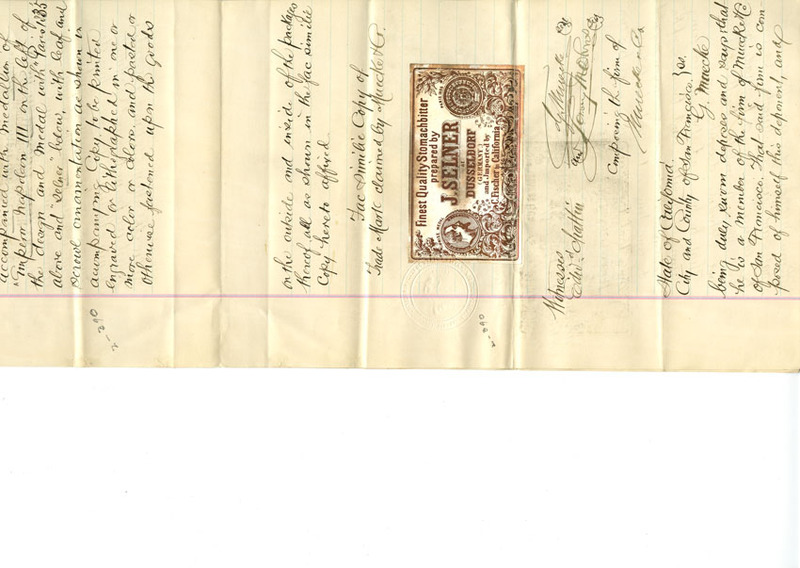 accompanied with medallion of
"Imperu Napoleon III" on the left of
the design and medal with "Paris 1855
above and "Selner" below, with leaf and
scroll ornamentation as shown in
accompanying Copy to be printed
engraved or lithographed in one or
more color or colors, and pasted or
otherwise fastened upon the goods
on the outside and inside of the package
thereof all as shown in the fac simile
Copy hereto affixed
Fac Similie Copy of
Trade Mark claimed by Muecke & Co.
Finest Quality Stomachbitter
prepared by
J. SELNER
at
DUSSELDORF
GERMANY
and imported by
F. Fischer's California
Witnesses
composing the firm of
Muecke & Co
State of California
City and County of San Francisco } ss.
G. Muecke
being duly sworn deposes and says that
he is a member of the firm of Muecke & Co
of San Francisco. That said firm is com
posed of himself this deponent, and
2-290
290